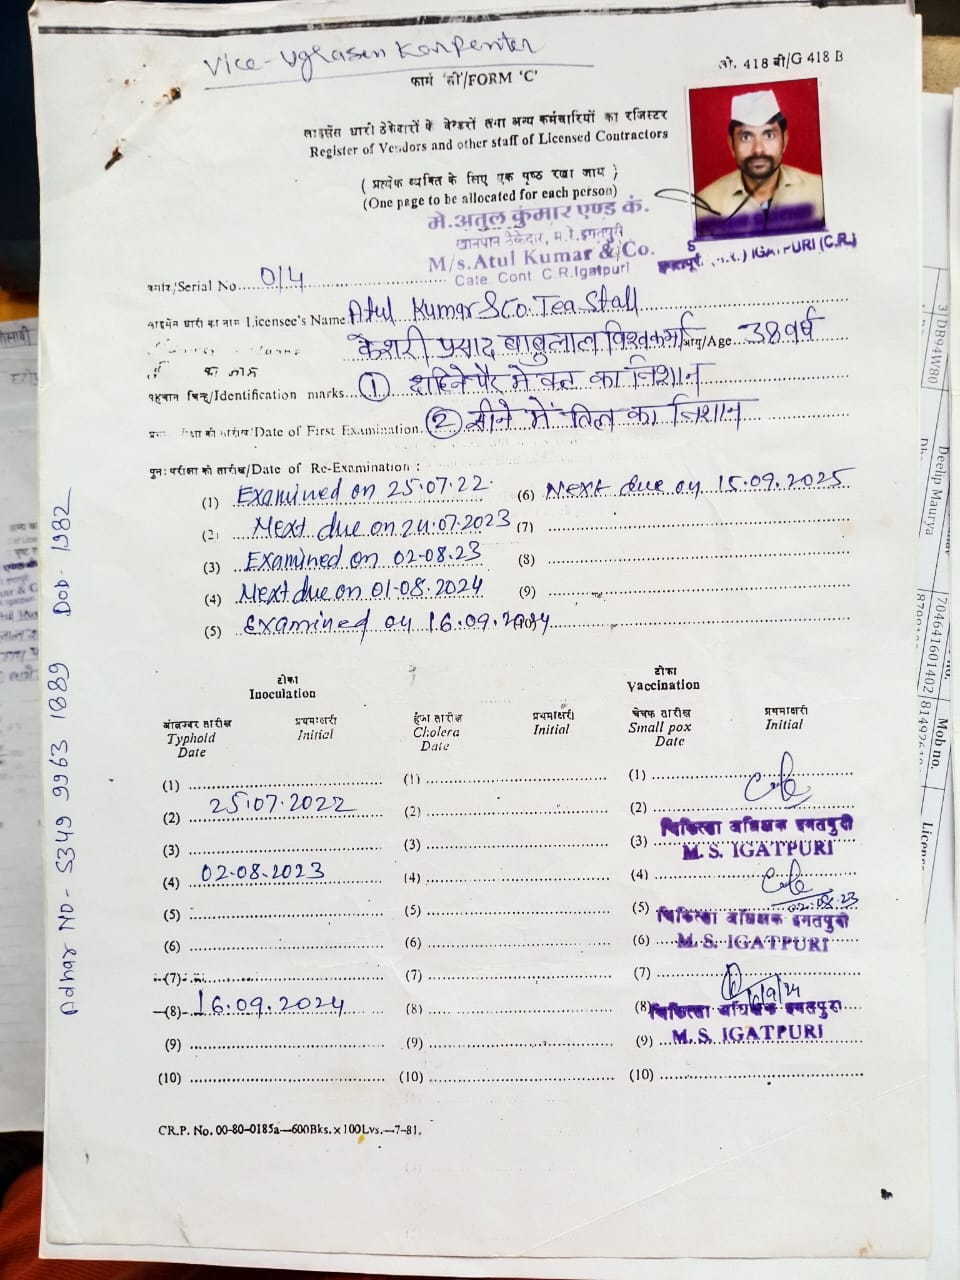 Vice- Ugrasen Karpenter
फार्म 'सी'/FORM 'C'
जी. 418 बी/G 418 B
लाइसेंस धारी ठेकेदारों के वेन्डरों तथा अन्य कर्मचारियों का रजिस्टर
Register of Vendors and other staff of Licensed Contractors
( प्रत्येक व्यक्ति के लिए एक पृष्ठ रखा जाय )
(One page to be allocated for each person)
मे. अतुल कुमार एण्ड कं.
खानपान ठेकेदार, म.रे.इगतपुरी
M/s. Atul Kumar & Co.
Cate. Cont. C.R.Igatpuri
IGATPURI (C.R.)
क्रमांक/Serial No. 014
लाइसेंस धारी का नाम Licensee's Name Atul Kumar & Co. Tea Stall
कैशरी प्रसाद बाबुलाल विश्वकर्मा आयु/Age 38 वर्ष
का नाम
पहचान चिन्ह/Identification marks... ① दाहिने पैर में कट का निशान
Date of First Examination. ② सीने में तिल का निशान
पुनः परीक्षा की तारीख/Date of Re-Examination :
(1) Examined on 25.07.22.
(6) Next due on 15.09.2025
(2) Next due on 24.07.2023
(7)
(3) Examined on 02-08.23
(8)
(4) Next due on 01-08.2024
(9)
(5) Examined on 16.09.2024
टीका
Inoculation
टीका
Vaccination
तारीख
Typhoid
Date
प्रथमाक्षरी
Initial
हैजा तारीख
Cholera
Date
प्रथमाक्षरी
Initial
चेचक तारीख
Small pox
Date
प्रथमाक्षरी
Initial
(1) (1) (1)
(2) 25.07.2022 (2) (2)
चिकित्सा अधिक्षक इगतपुरी
(3) (3) (3) M. S. IGATPURI
(4) 02-08-2023 (4) (4)
(5) (5) (5) 02.08.23
चिकित्सा अधिक्षक इगतपुरी
(6) (6) (6) M. S. IGATPURI
(7) (7) (7)
16/9/24
(8) 16.09.2024 (8) (8) चिकित्सा अधिक्षक इगतपुरी
(9) (9) (9) M. S. IGATPURI
(10) (10) (10)
CR.P. No. 00-80-0185a—600Bks. x 100Lvs.—7-81.
Adhar NO- 5349 9963 1889 Dob- 1982
3 D894W80
Deelip Maurya
704641601402
Mob no.